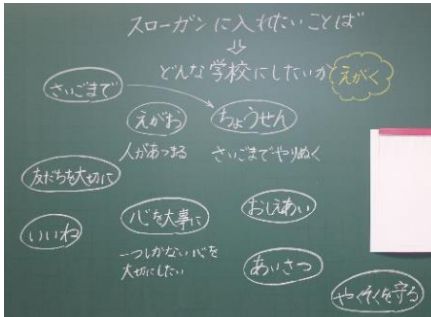 スローガンに入れたいことば
⇓
どんな学校にしたいか
えがく
さいごまで
えがお
ちょうせん
人があつまる
さいごまでやりぬく
友だちを大切に
心を大事に
おしえあい
いいね
一つしかない心を
大切にしたい
あいさつ
やくそくを守る